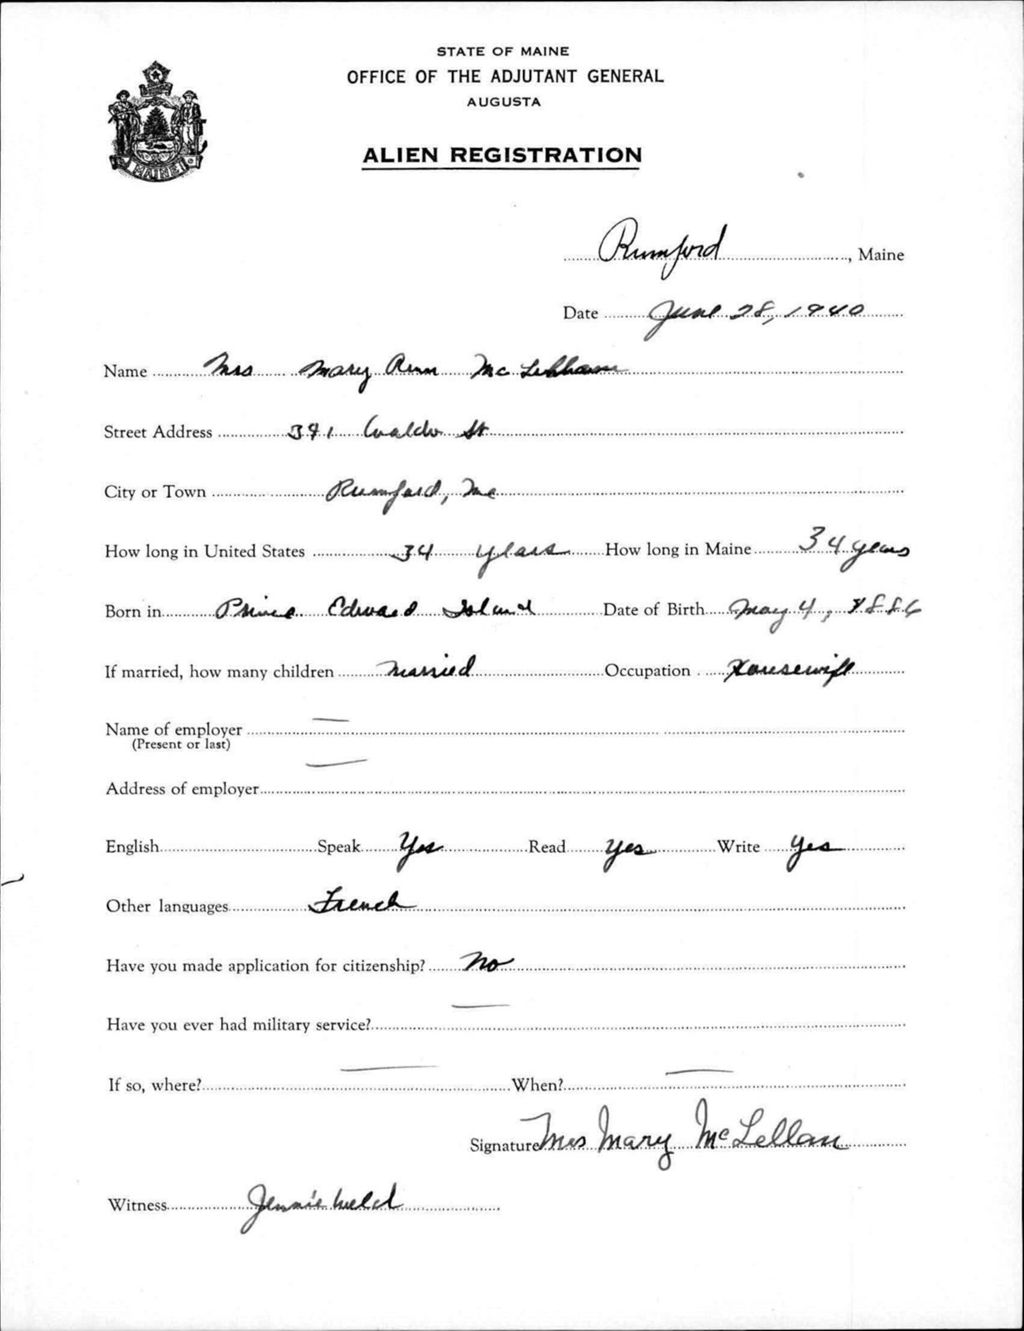 STATE OF MAINE
OFFICE OF THE ADJUTANT GENERAL
AUGUSTA
ALIEN REGISTRATION
MAINE
Rumford, Maine
Date June 28, 1940
Name Mrs Mary Ann McLellan
Street Address 391 Waldo St
City or Town Rumford, Me
How long in United States 34 years How long in Maine 34 years
Born in Prince Edward Island Date of Birth May 4, 1886
If married, how many children Married Occupation Housewife
Name of employer —
(Present or last)
Address of employer —
English Speak Yes Read Yes Write Yes
Other languages French
Have you made application for citizenship? No
Have you ever had military service? —
If so, where? — When? —
Signature Mrs Mary McLellan
Witness Jennie Weld